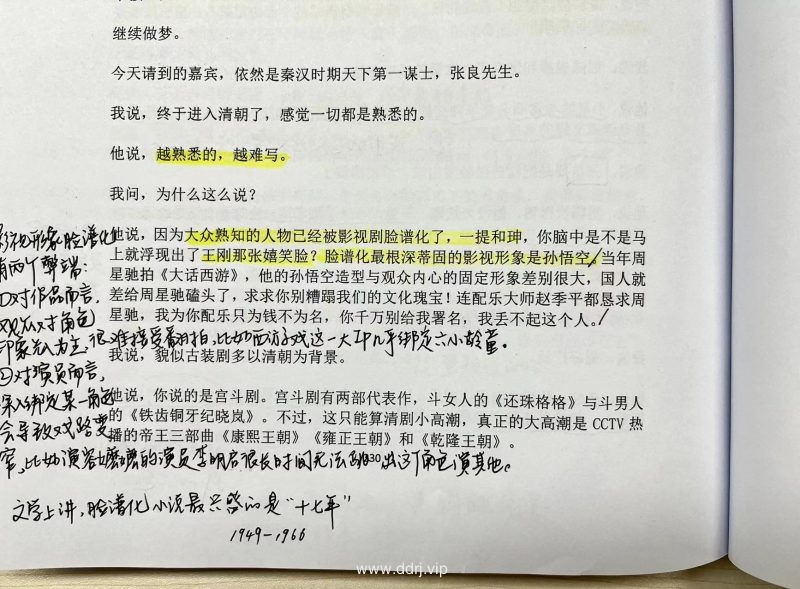 继续做梦。
今天请到的嘉宾，依然是秦汉时期天下第一谋士，张良先生。
我说，终于进入清朝了，感觉一切都是熟悉的。
他说，越熟悉的，越难写。
我问，为什么这么说？
他说，因为大众熟知的人物已经被影视剧脸谱化了，一提和珅，你脑中是不是马
上就浮现出了王刚那张嬉笑脸？脸谱化最根深蒂固的影视形象是孙悟空，当年周
星驰拍《大话西游》，他的孙悟空造型与观众内心的固定形象差别很大，国人就
差给周星驰磕头了，求求你别糟蹋我们的文化瑰宝！连配乐大师赵季平都恳求周
星驰，我为你配乐只为钱不为名，你千万别给我署名，我丢不起这个人。
我说，貌似古装剧多以清朝为背景。
他说，你说的是宫斗剧。宫斗剧有两部代表作，斗女人的《还珠格格》与斗男人
的《铁齿铜牙纪晓岚》。不过，这只能算清剧小高潮，真正的大高潮是 CCTV 热
播的帝王三部曲《康熙王朝》《雍正王朝》和《乾隆王朝》。
30
影视形象脸谱化
有两个弊端：
①对作品而言，
观众对角色
印象先入为主，很难接受翻拍，比如西游戏这一大IP几乎绑定六小龄童。
②对演员而言，
深入绑定某一角色
会导致戏路变
窄，比如演容嬷嬷的演员李明启很长时间无法跳出这个角色演其他。
文学上讲，脸谱化小说最兴盛的是“十七年”
1949-1966
www.ddrj.vip